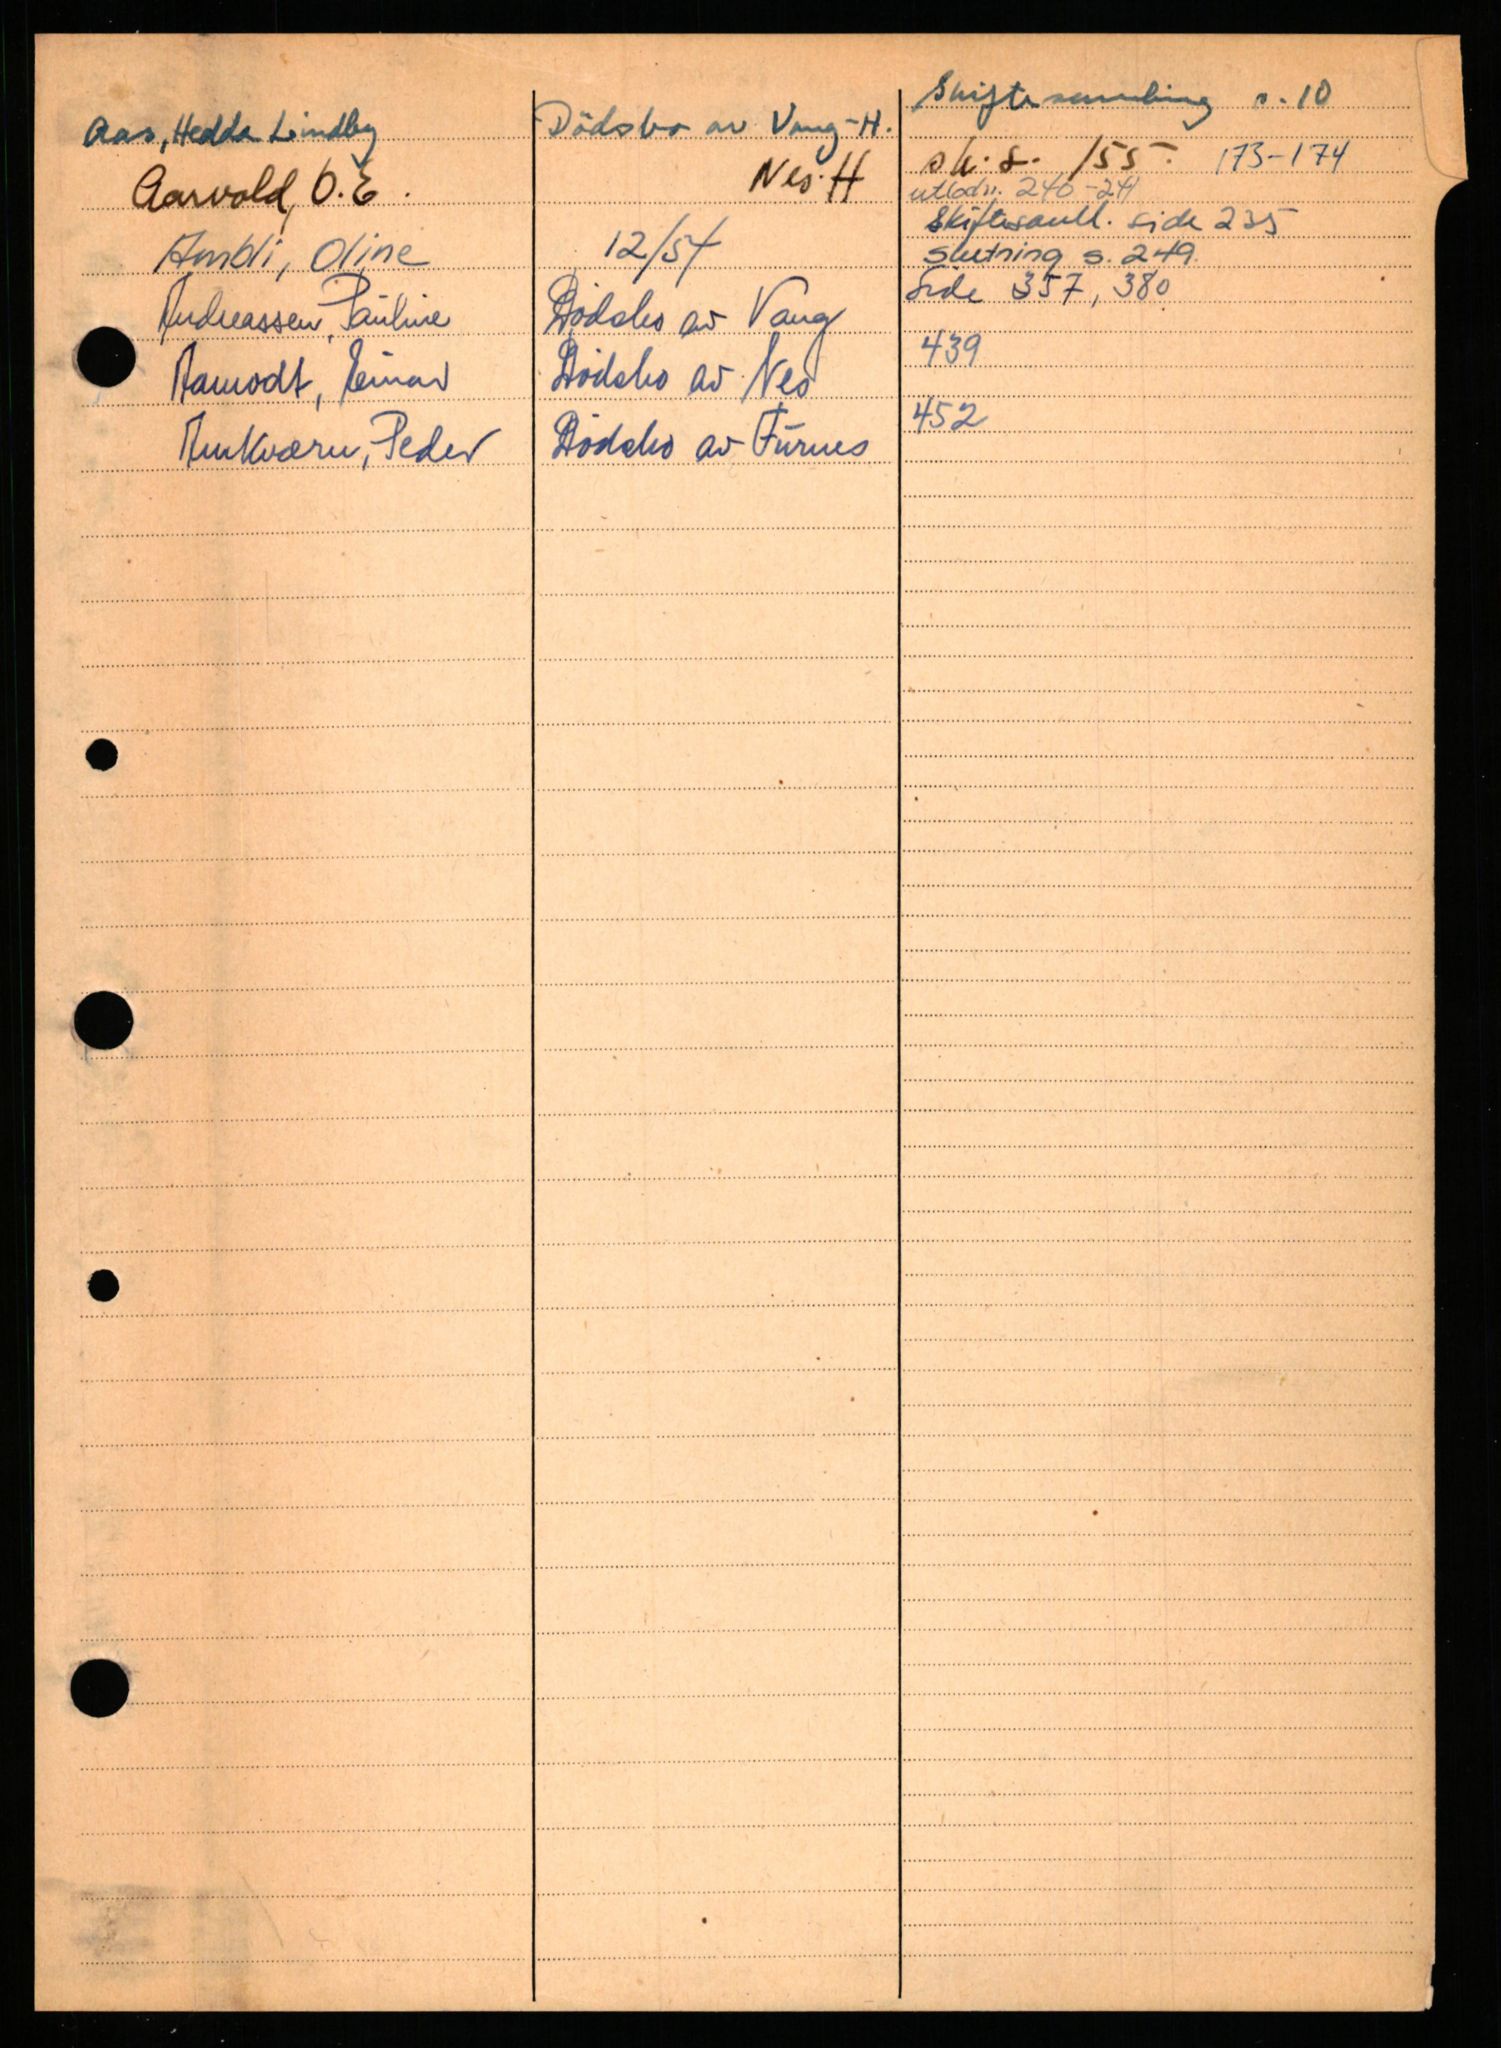 Skiftesamling s. 10
Aas, Hedda Lindby Dödsbo av Vang-H.
sk. s. 155. 173-174
Aarvold, O. E. Nes. H
utlodn. 240-241
Skiftesaml. side 235
Ambli, Oline 12/54
slutning s. 249.
Side 357, 380
Andreassen, Pauline Dödsbo av Vang
439
Aamodt, Einar Dödsbo av Nes
452
Amkværn, Peder Dödsbo av Furnes